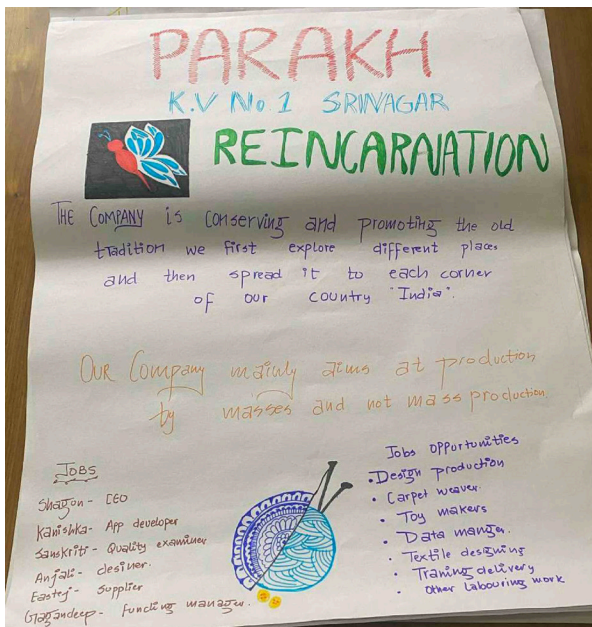 PARAKH
K.V No 1 SRINAGAR
REINCARNATION
THE COMPANY is conserving and promoting the old
tradition we first explore different places
and then spread it to each corner
of our country "India".
OUR Company mainly aims at production
by masses and not mass production
JOBS
Shagun - CEO
Kanishka - App developer
Sanskriti - Quality examiner
Anjali - desiner
- Supplier
Gagandeep - Functing manager
Jobs opportunities
• Design production
• Carpet weaver
• Toy makers
• Data manger
• Textile designing
• Traning delivery
• Other labouring work